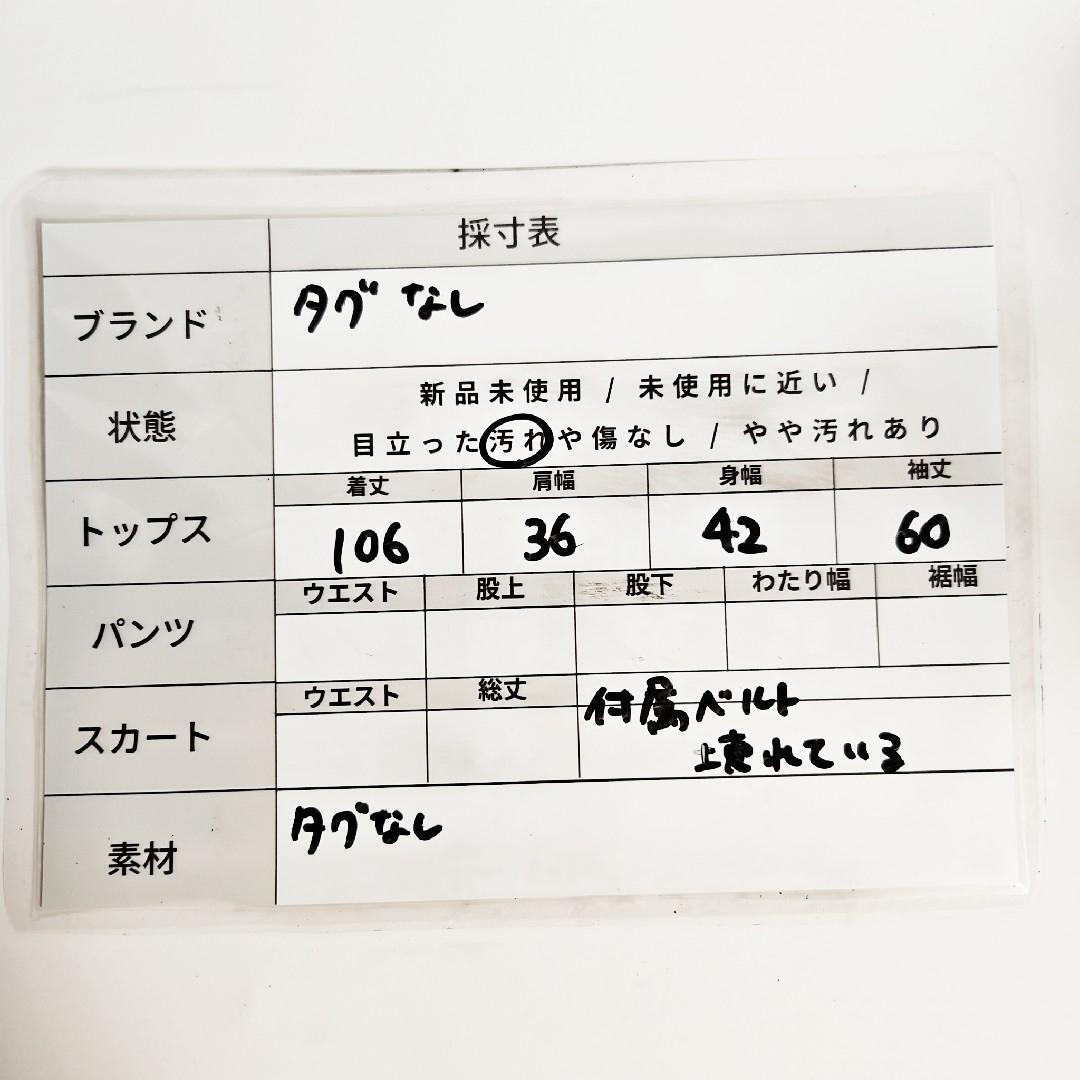 採寸表
ブランド タグなし
状態 新品未使用 / 未使用に近い /
目立った汚れや傷なし / やや汚れあり
トップス 着丈 肩幅 身幅 袖丈
106 36 42 60
パンツ ウエスト 股上 股下 わたり幅 裾幅
スカート ウエスト 総丈 付属ベルト
壊れている
素材 タグなし